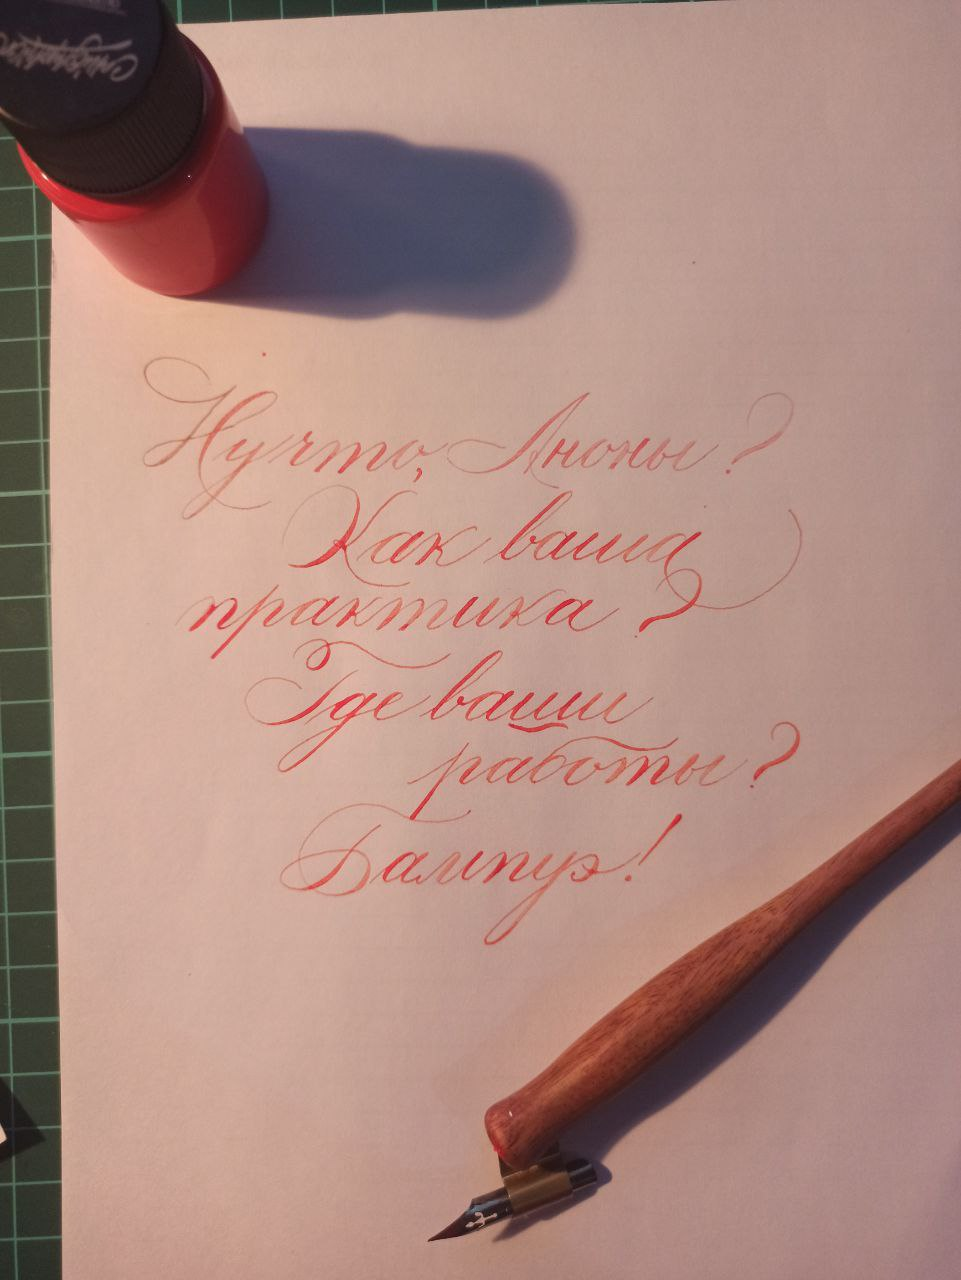 Ну что, Аноны?
Как ваша
практика?
Где ваши
работы?
Бампуэ!